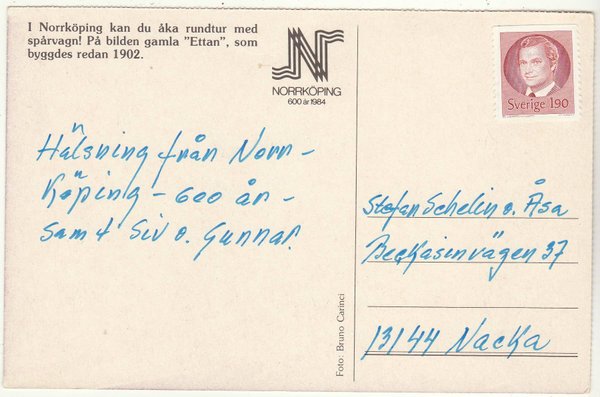 I Norrköping kan du åka rundtur med
spårvagn! På bilden gamla "Ettan", som
byggdes redan 1902.
NORRKÖPING
600 år 1984
Sverige 190
Hälsning från Norr-
köping - 600 år -
samt Siv o. Gunnar.
Stefan Schelin o. Åsa
Beckasinvägen 37
13144 Nacka
Foto: Bruno Carinci